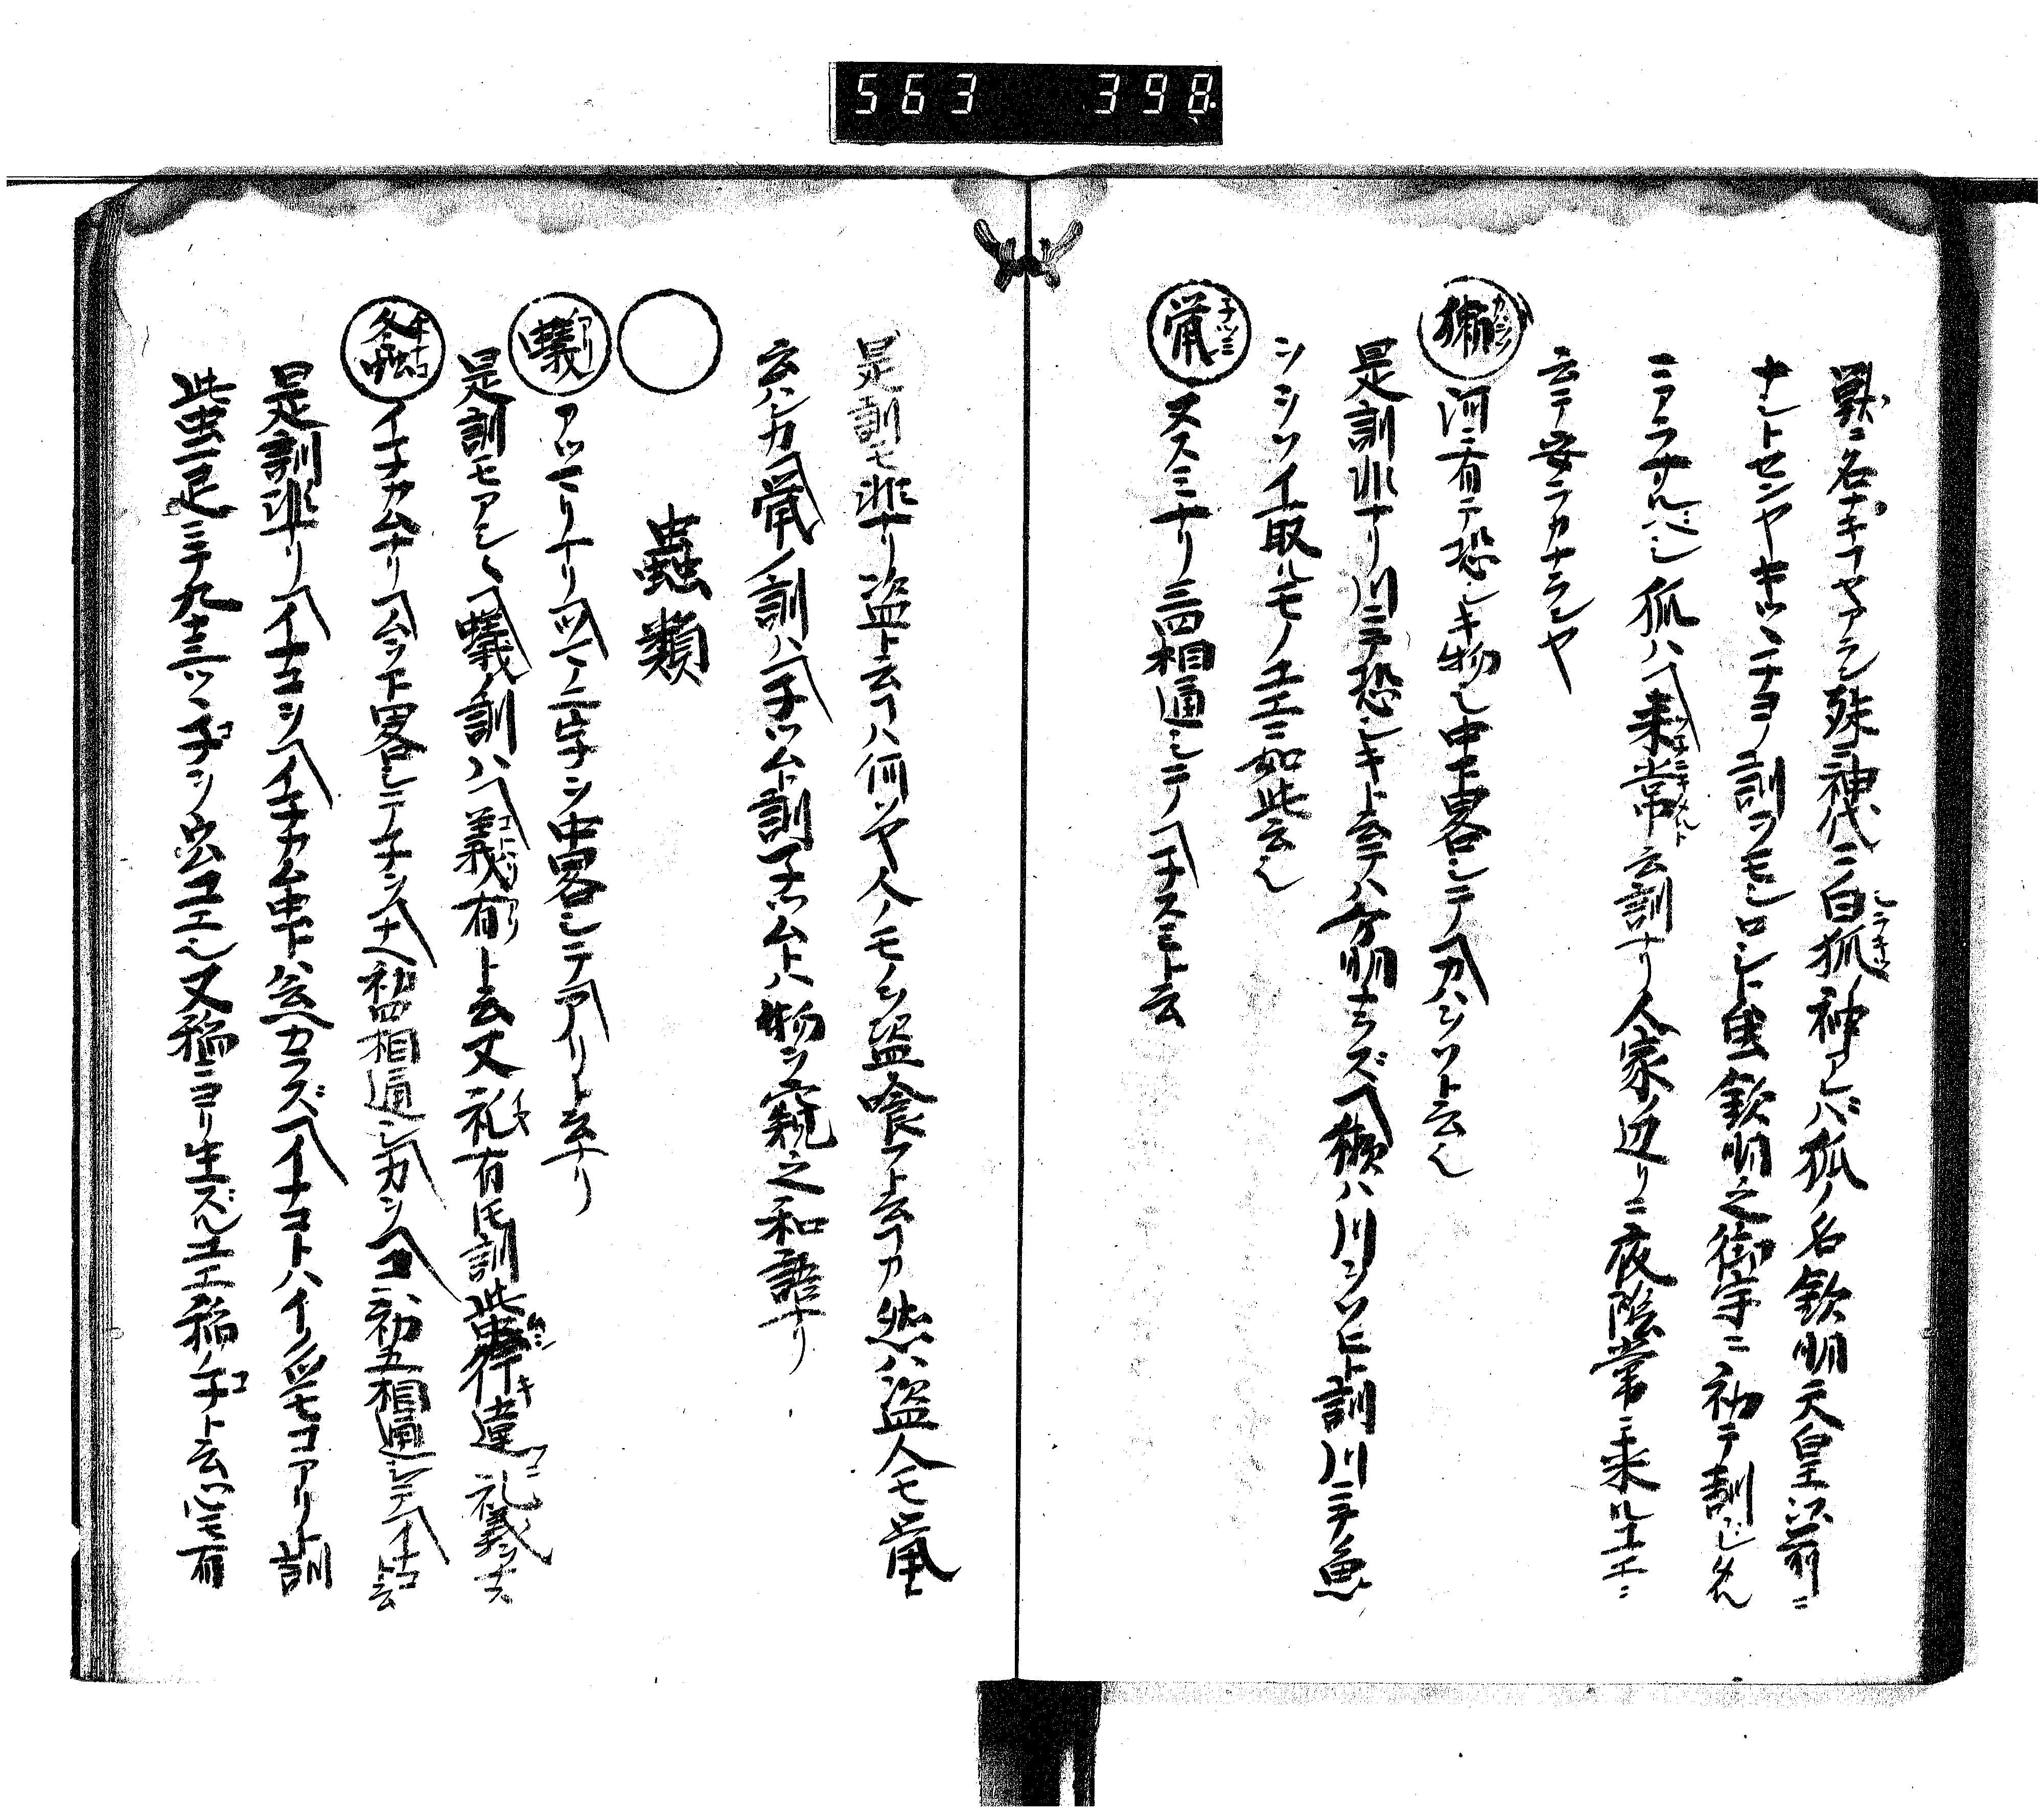 563 398
獣ニ名ナキコヤアラン殊ニ神代ニ白狐ノ神アレバ狐ノ名欽明天皇以前ニ
ナシトセンヤキツネヨノ訓ヲモシロシト虽欽明之御宇ニ初テ訓ジタル
ニアラザルベシ狐ハ来常云訓ナリ人家ノ辺リニ夜陰常ニ来ルユエニ
云テ安テカナランヤ
獺 河ニ有テ恐シキ物也中下畧シテカハヲソト云也
是訓非ナリ川ニテ恐シキト云テハ分明ナラズ獺ハ川ヲソヒト訓川ニテ魚
ヲソイ取ルモノユエニ如此云也
鼠 ヌスミナリ三四相通シテノ子スミト云
是訓モ非ナリ盗ト云フハ何ソヤ人ノモノヲ盗喰フト云フカ然ハ盗人モ鼠ト
云ハンカ鼠ノ訓ハ子ツムト訓子ツムトハ物ヲ窺之和語ナリ
蟲類
蟻 アツマリナリツマノ二字ヲ中畧シテアリト云ナリ
是訓モアシヽ蟻訓ハ義有ト云又礼有氏訓此虫行違礼義ヲナス
螽 イナカムナリムヲ下畧シテ子ヲナヘ初四相通シカヲコニ初五相通シテイナコト云
是訓非ナリイナコヲイ子カム虫トハ云ヘカラズイナコトハイノ手モコアリト訓
此虫二足ニテ九ツヽ子ヲ ユエ也又稲ニヨリ生ズルユエ稲ノ子ト云心モ有